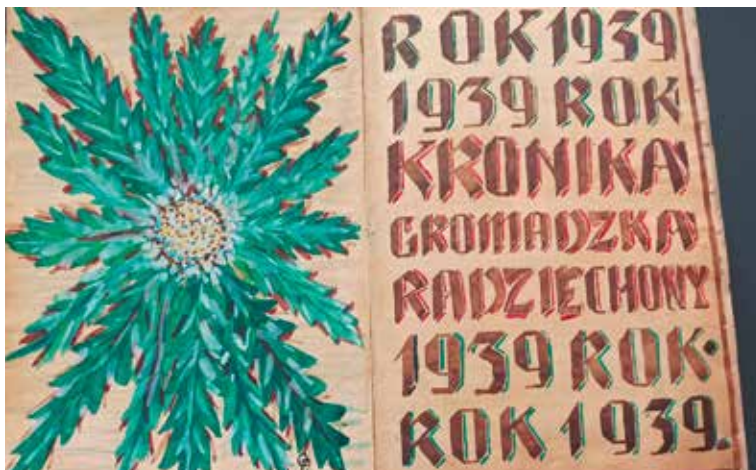 ROK 1939
1939 ROK
KRONIKA
GROMADZKA
RADZIĘCHOWY
1939 ROK.
ROK 1939.